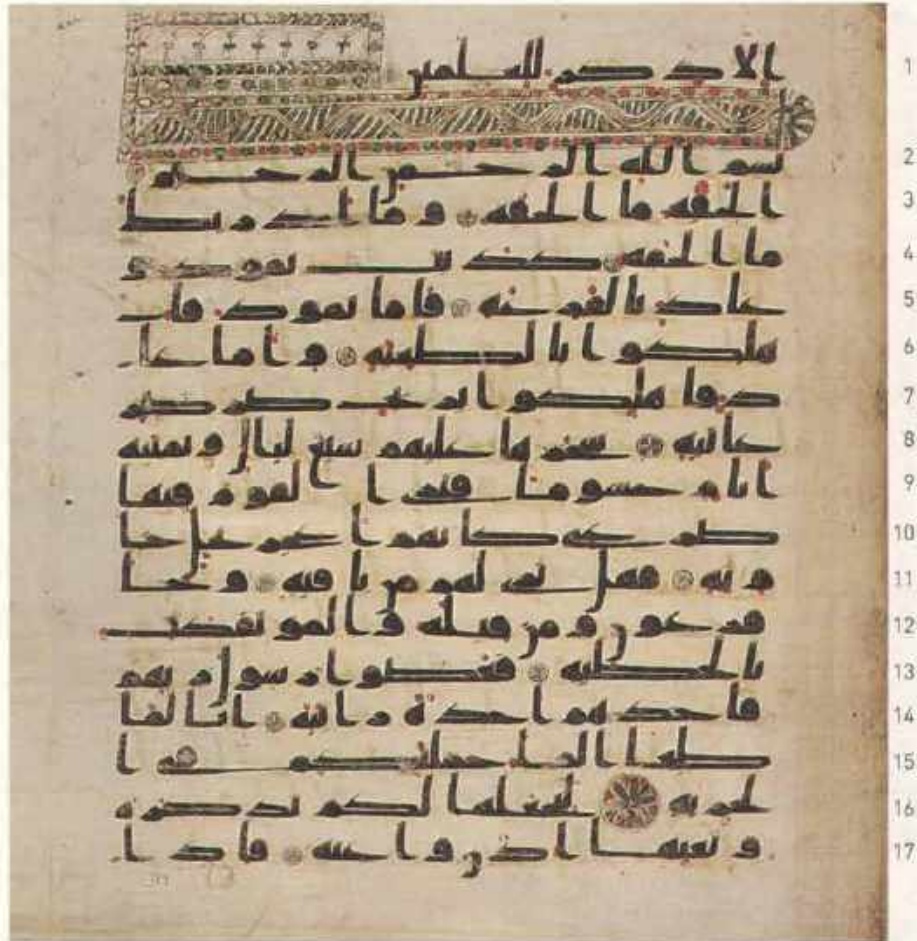 1 الا ذكر للعلمين
2 بسم الله الرحمن الرحيم
3 الحقه ما الحقه وما ادريك
4 ما الحقه كذبت ثمود و
5 عاد بالقرعه فاما ثمود فا
6 هلكوا بالطغيه واما عا
7 د فاهلكوا بريح صرصر
8 عاتيه سخرها عليهم سبع ليال وثمنيه
9 ايام حسوما فترى القوم فيها
10 صرعى كانهم اعجز نخل خا
11 ويه فهل ترى لهم من باقيه وجا
12 فرعون ومن قبله والموتفكت
13 بالخطيه فعصوا رسول ربهم
14 فاخذهم اخذة رابيه انا لما
15 طغا الما حملنكم في ا
16 لجريه لنجعلها لكم تذكره
17 وتعيها اذن وعيه فاذا